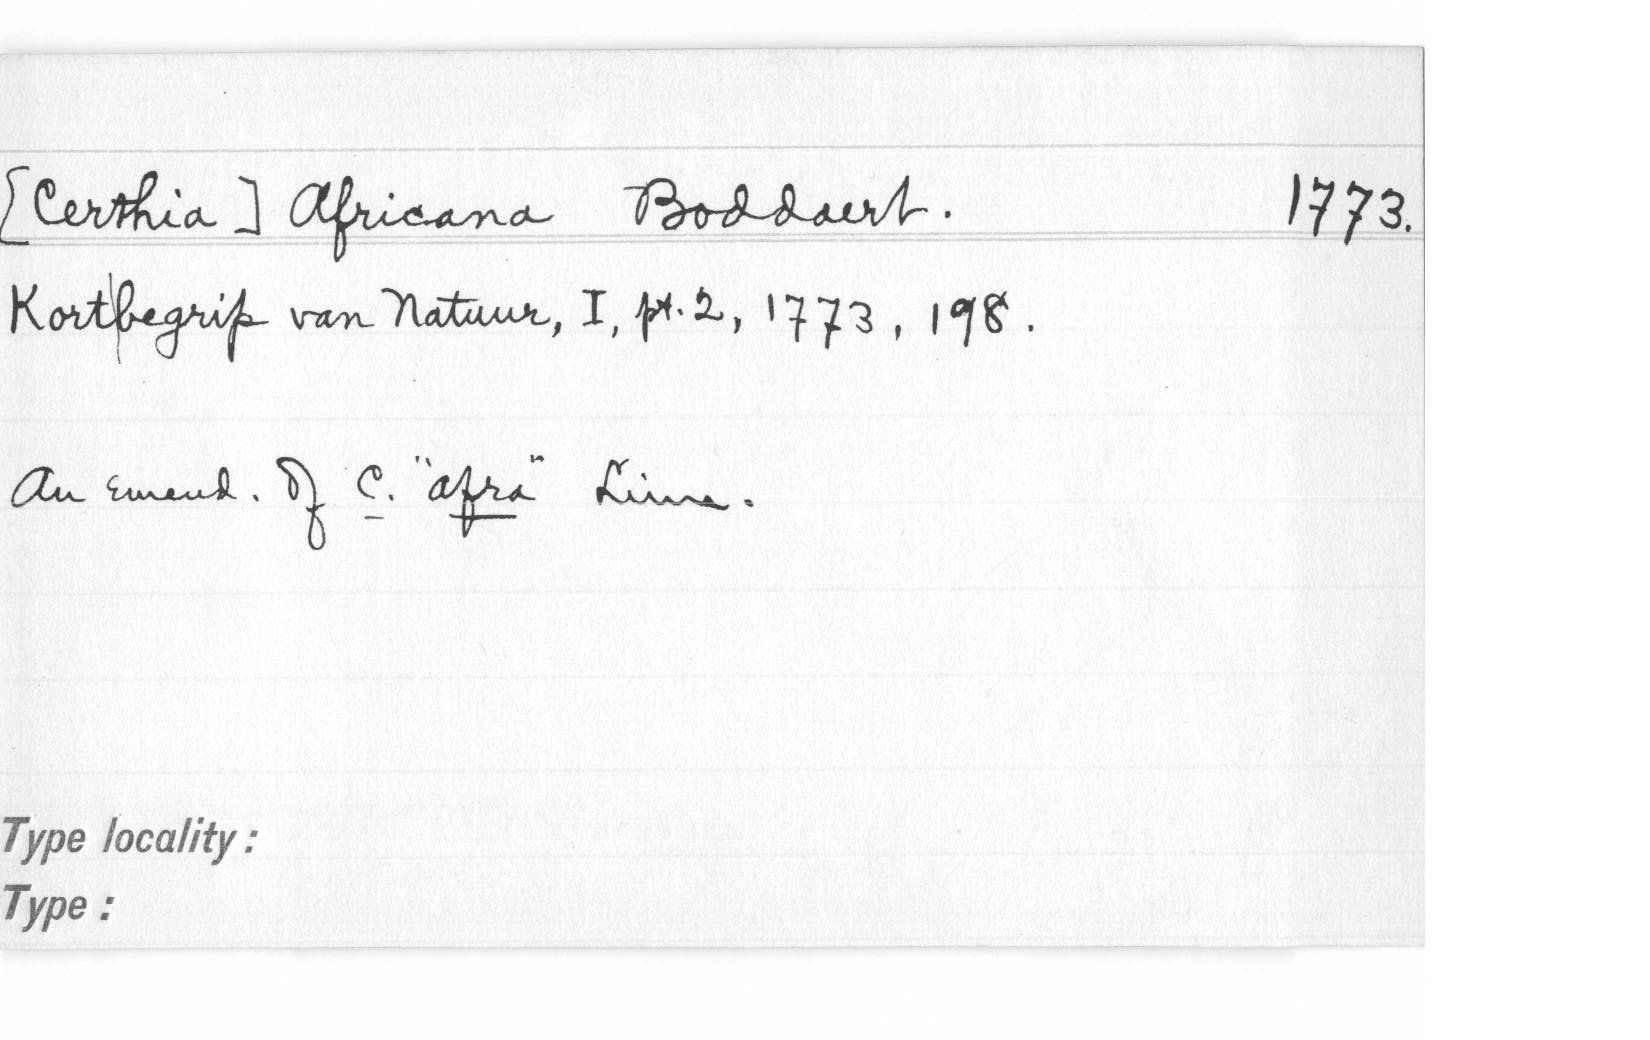 [Certhia] Africana Boddaert. 1773.
Kort|begrip van Natuur, I, pt. 2, 1773, 198.
An emend. of C. "afra" Linn.
Type locality:
Type: